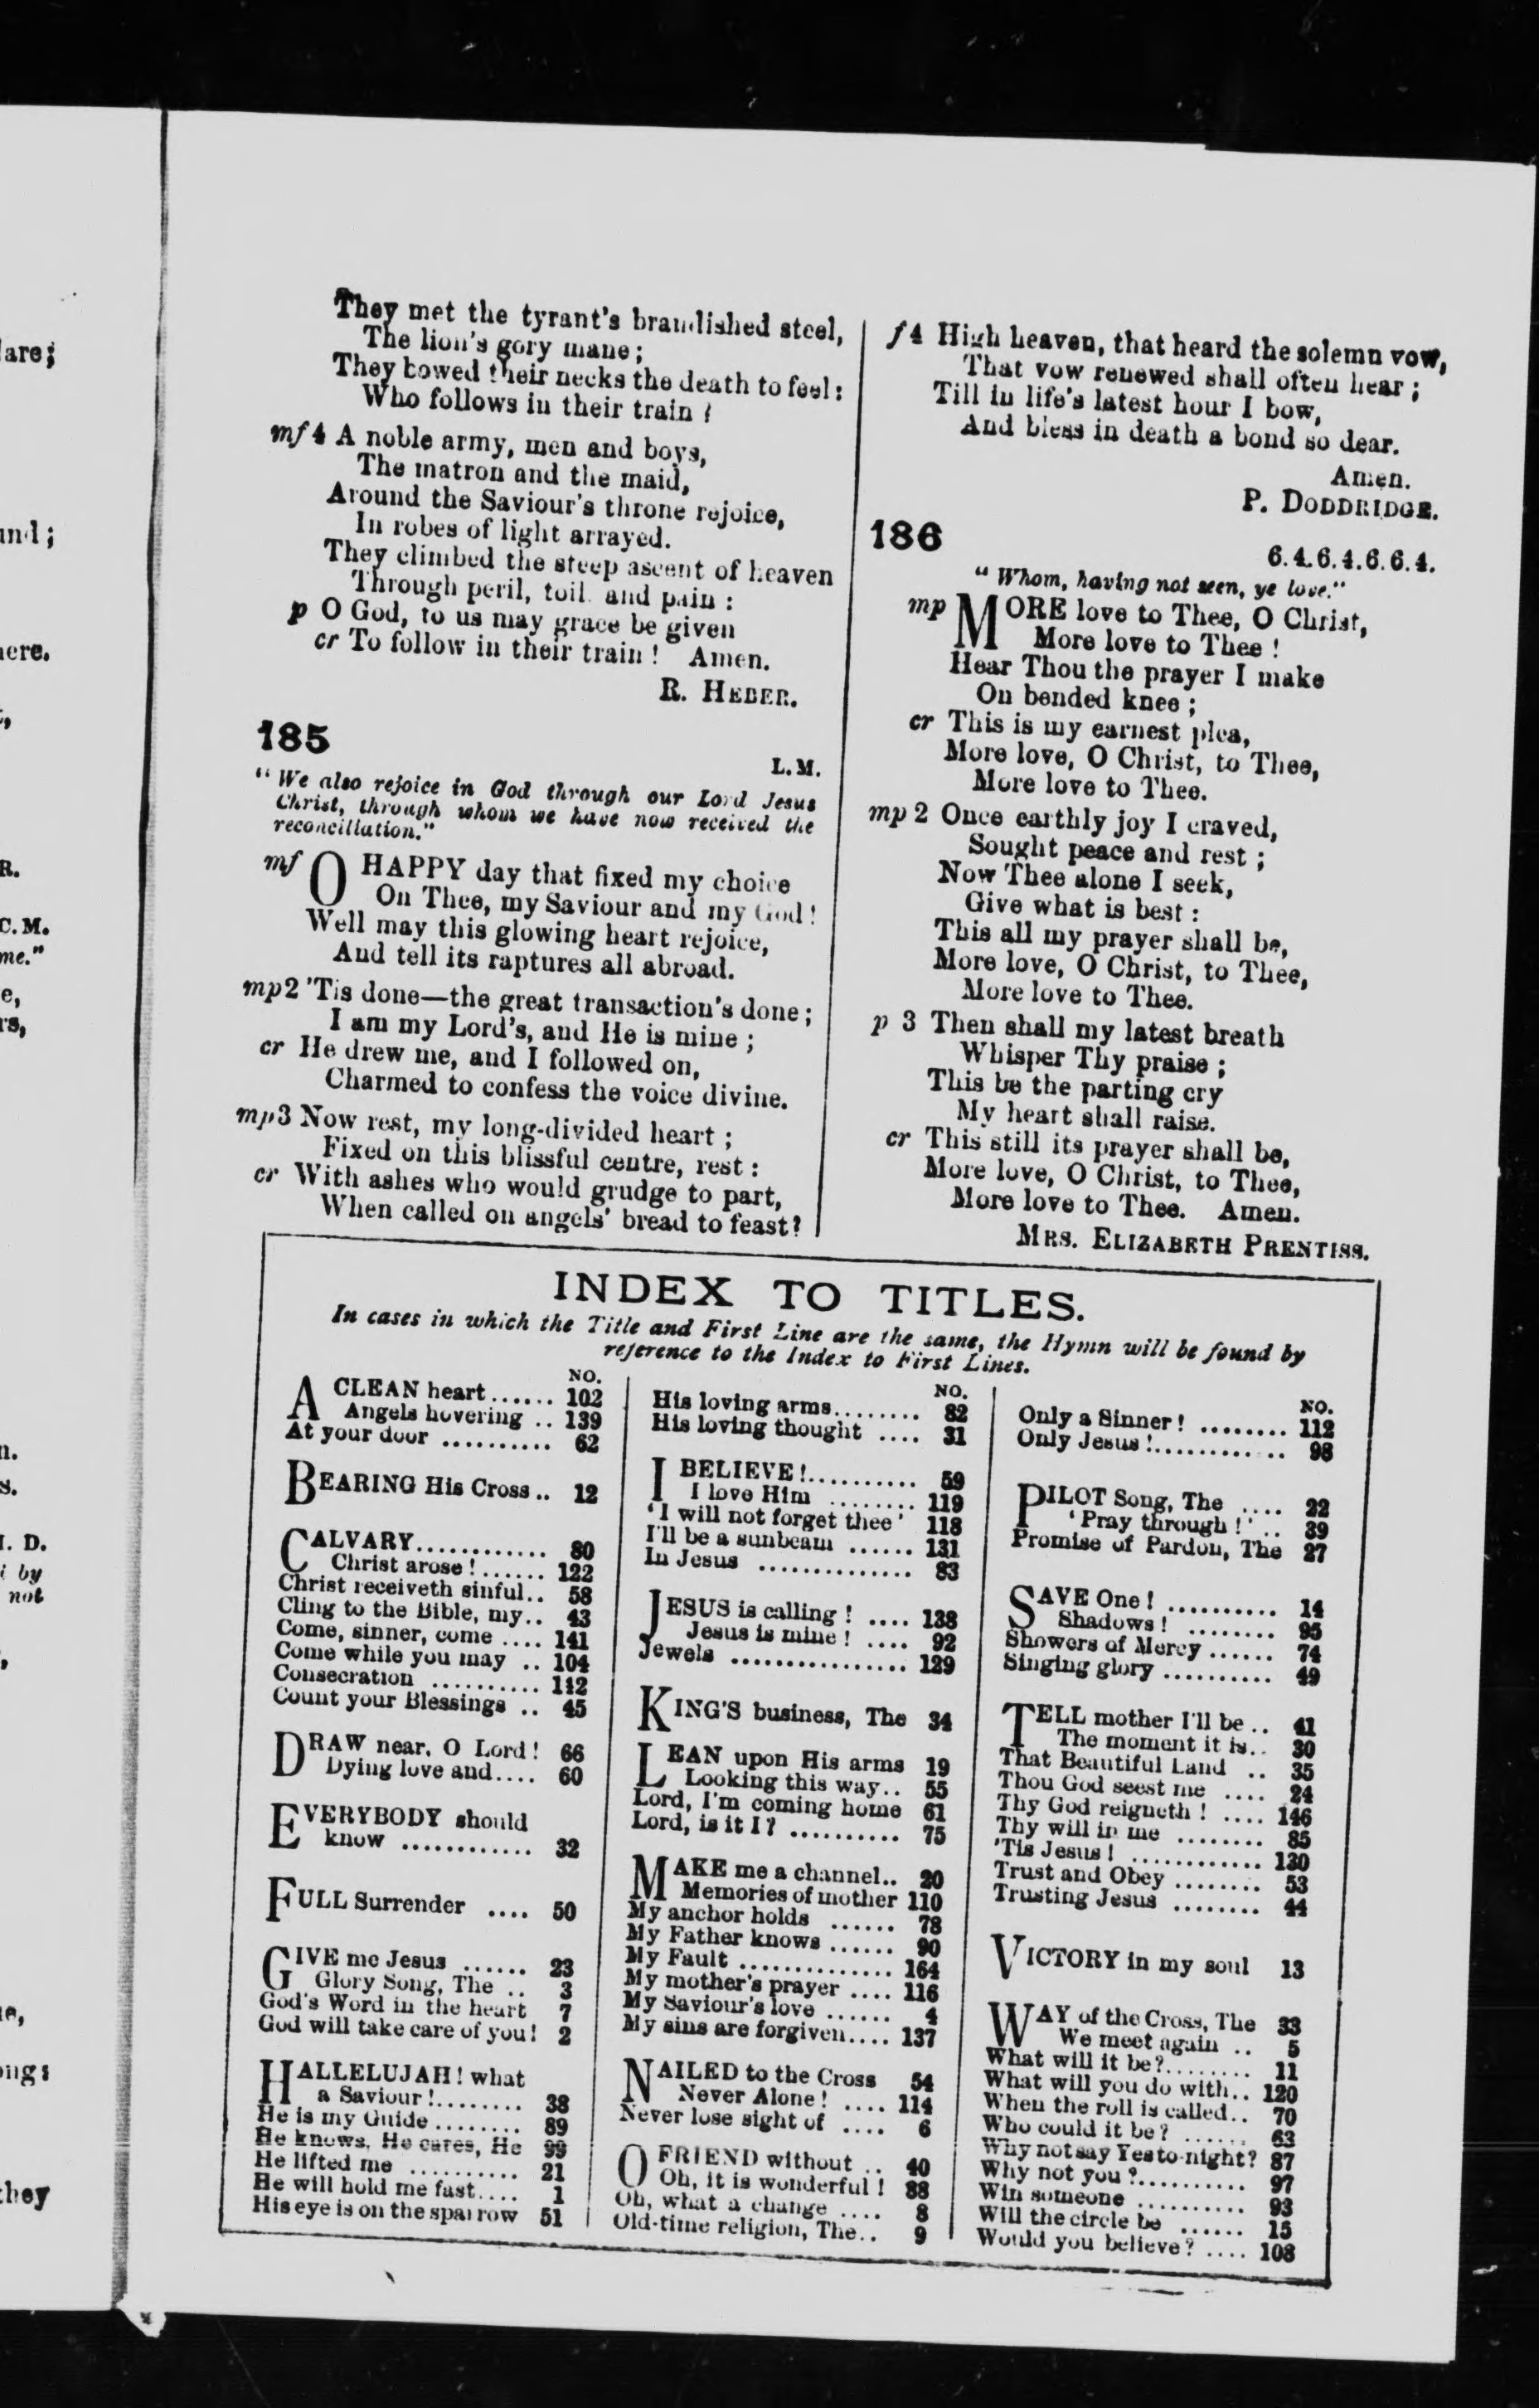 They met the tyrant's brandished steel,
The lion's gory mane;
They bowed their necks the death to feel:
Who follows in their train?
mf 4 A noble army, men and boys,
The matron and the maid,
Around the Saviour's throne rejoice,
In robes of light arrayed.
They climbed the steep ascent of heaven
Through peril, toil and pain:
p O God, to us may grace be given
cr To follow in their train! Amen.
R. HEBER.
185
L.M.
"We also rejoice in God through our Lord Jesus
Christ, through whom we have now received the
reconciliation."
mf O HAPPY day that fixed my choice
On Thee, my Saviour and my God!
Well may this glowing heart rejoice,
And tell its raptures all abroad.
mp 2 'Tis done—the great transaction's done;
I am my Lord's, and He is mine;
cr He drew me, and I followed on,
Charmed to confess the voice divine.
mp 3 Now rest, my long-divided heart;
Fixed on this blissful centre, rest:
cr With ashes who would grudge to part,
When called on angels' bread to feast?
f 4 High heaven, that heard the solemn vow,
That vow renewed shall often hear;
Till in life's latest hour I bow,
And bless in death a bond so dear.
Amen.
P. DODDRIDGE.
186
6.4.6.4.6.6.4.
"Whom, having not seen, ye love."
mp MORE love to Thee, O Christ,
More love to Thee!
Hear Thou the prayer I make
On bended knee;
cr This is my earnest plea,
More love, O Christ, to Thee,
More love to Thee.
mp 2 Once earthly joy I craved,
Sought peace and rest;
Now Thee alone I seek,
Give what is best:
This all my prayer shall be,
More love, O Christ, to Thee,
More love to Thee.
p 3 Then shall my latest breath
Whisper Thy praise;
This be the parting cry
My heart shall raise.
cr This still its prayer shall be,
More love, O Christ, to Thee,
More love to Thee. Amen.
MRS. ELIZABETH PRENTISS.
INDEX TO TITLES.
In cases in which the Title and First Line are the same, the Hymn will be found by
reference to the Index to First Lines.
NO.
A CLEAN heart...... 102
Angels hovering .. 139
At your door .......... 62
BEARING His Cross.. 12
CALVARY............ 80
Christ arose!...... 122
Christ receiveth sinful.. 58
Cling to the Bible, my.. 43
Come, sinner, come .... 141
Come while you may .. 104
Consecration .......... 142
Count your Blessings .. 45
DRAW near, O Lord! 66
Dying love and.... 60
EVERYBODY should
know ............ 32
FULL Surrender .... 50
GIVE me Jesus ...... 23
Glory Song, The .. 3
God's Word in the heart 7
God will take care of you! 2
HALLELUJAH! what
a Saviour!........ 38
He is my Guide ........ 89
He knows, He cares, He 99
He lifted me .......... 21
He will hold me fast.... 1
His eye is on the sparrow 51
NO.
His loving arms........ 82
His loving thought .... 31
I BELIEVE!.......... 59
I love Him ........ 119
'I will not forget thee' 118
I'll be a sunbeam ...... 131
In Jesus .............. 83
JESUS is calling! .... 138
Jesus is mine! .... 92
Jewels ................ 129
KING'S business, The 34
LEAN upon His arms 19
Looking this way.. 55
Lord, I'm coming home 61
Lord, is it I? .......... 75
MAKE me a channel.. 20
Memories of mother 110
My anchor holds ...... 78
My Father knows ...... 90
My Fault .............. 164
My mother's prayer .... 116
My Saviour's love ...... 4
My sins are forgiven.... 137
NAILED to the Cross 54
Never Alone! .... 114
Never lose sight of .... 6
O FRIEND without .. 40
Oh, it is wonderful! 88
Oh, what a change .... 8
Old-time religion, The.. 9
NO.
Only a Sinner! ........ 112
Only Jesus!............ 98
PILOT Song, The .... 22
'Pray through!' .. 39
Promise of Pardon, The 27
SAVE One! .......... 14
Shadows! ........ 95
Showers of Mercy ...... 74
Singing glory .......... 49
TELL mother I'll be.. 41
The moment it is.. 30
That Beautiful Land .. 35
Thou God seest me .... 24
Thy God reigneth! .... 146
Thy will in me ........ 85
'Tis Jesus! ............ 130
Trust and Obey ........ 53
Trusting Jesus ........ 44
VICTORY in my soul 13
WAY of the Cross, The 33
We meet again .. 5
What will it be?........ 11
What will you do with.. 120
When the roll is called.. 70
Who could it be? ...... 63
Why not say Yes to-night? 87
Why not you?.......... 97
Win someone .......... 93
Will the circle be ...... 15
Would you believe? .... 108